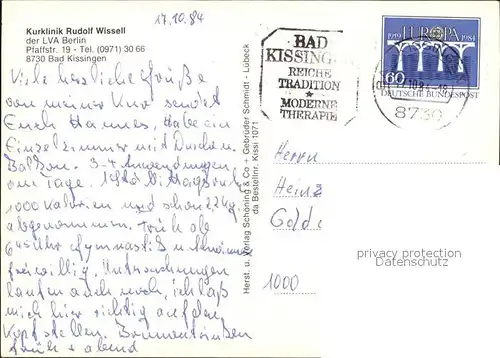 17.10.84
Kurklinik Rudolf Wissell
der LVA Berlin
Pfaffstr. 19 - Tel. (0971) 30 66
8730 Bad Kissingen
Viele herzliche Grüße
von meiner Kur sendet
Euch Hannes. Habe ein
Einzelzimmer mit Dusche u.
Balkon. 3-4 Anwendungen
am Tage. 1 Std Mittagsruhe
1000 Kalorien und schon 2,2 kg
abgenommen. Früh ab
6 45 Uhr Gymnastik u.
freiwillig. Untersuchungen
laufen auch noch, ich laß
mich hier richtig auf den
Kopf stellen. Brunnentrinken
früh + abend
Herst. u. Verlag Schöning & Co + Gebrüder Schmidt - Lübeck
da Bestellnr. Kissi 1071
BAD
KISSINGEN
REICHE
TRADITION
★
MODERNE
THERAPIE
1919 EUROPA 1984
60
DEUTSCHE BUNDESPOST
8730
Herrn
Heinz
Gold
1000
privacy protection
Datenschutz